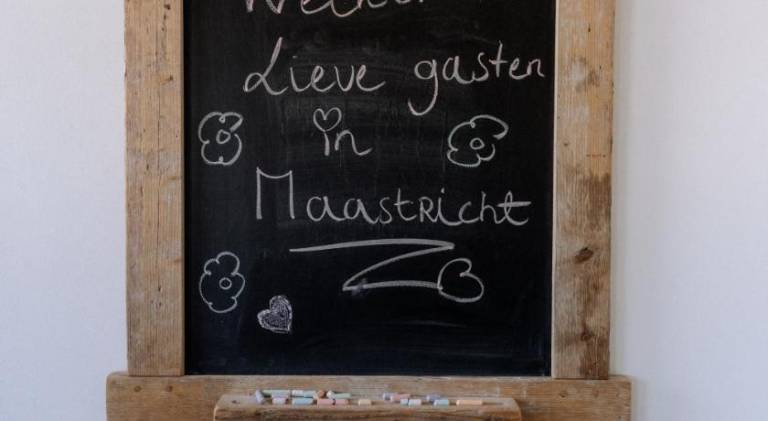 Lieve gasten
in
Maastricht